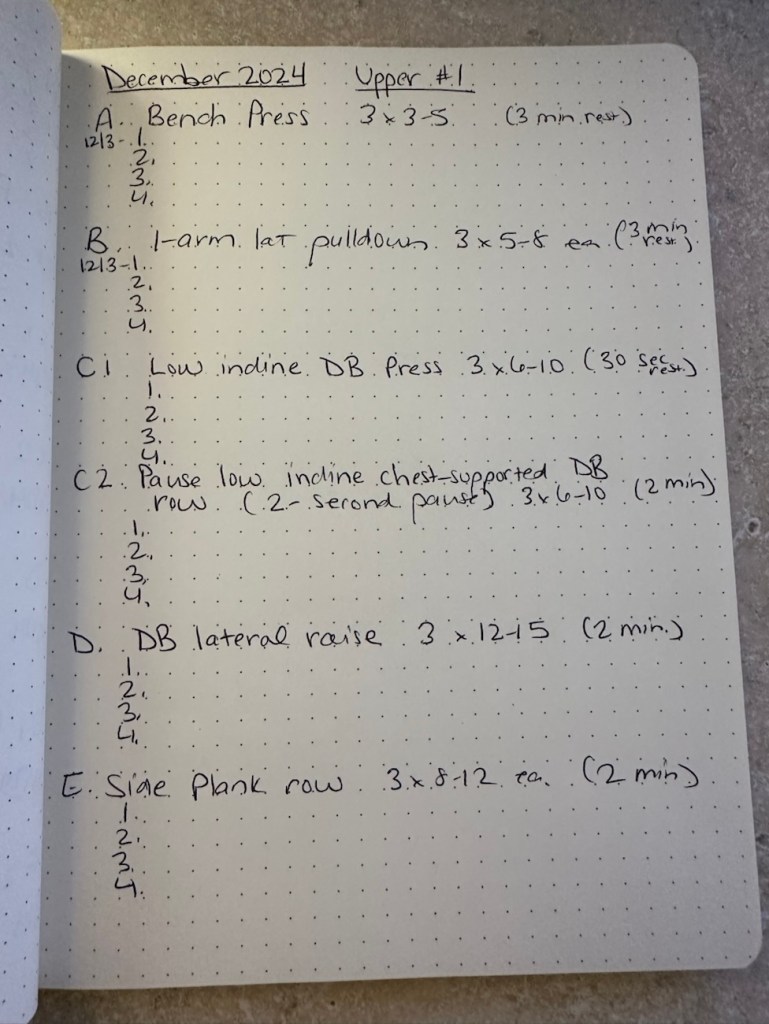 December 2024 Upper #1
A. Bench Press 3x3-5 (3 min rest)
12/3-1.
2.
3.
4.
B. 1-arm lat pulldown 3x5-8 ea (3 min rest)
12/3-1.
2.
3.
4.
C1 Low incline DB Press 3x6-10 (30 sec rest)
1.
2.
3.
4.
C2. Pause low incline chest-supported DB
row (2-second pause) 3x6-10 (2 min)
1.
2.
3.
4.
D. DB lateral raise 3 x 12-15 (2 min)
1.
2.
3.
4.
E. Side Plank row 3x8-12 ea. (2 min)
1.
2.
3.
4.